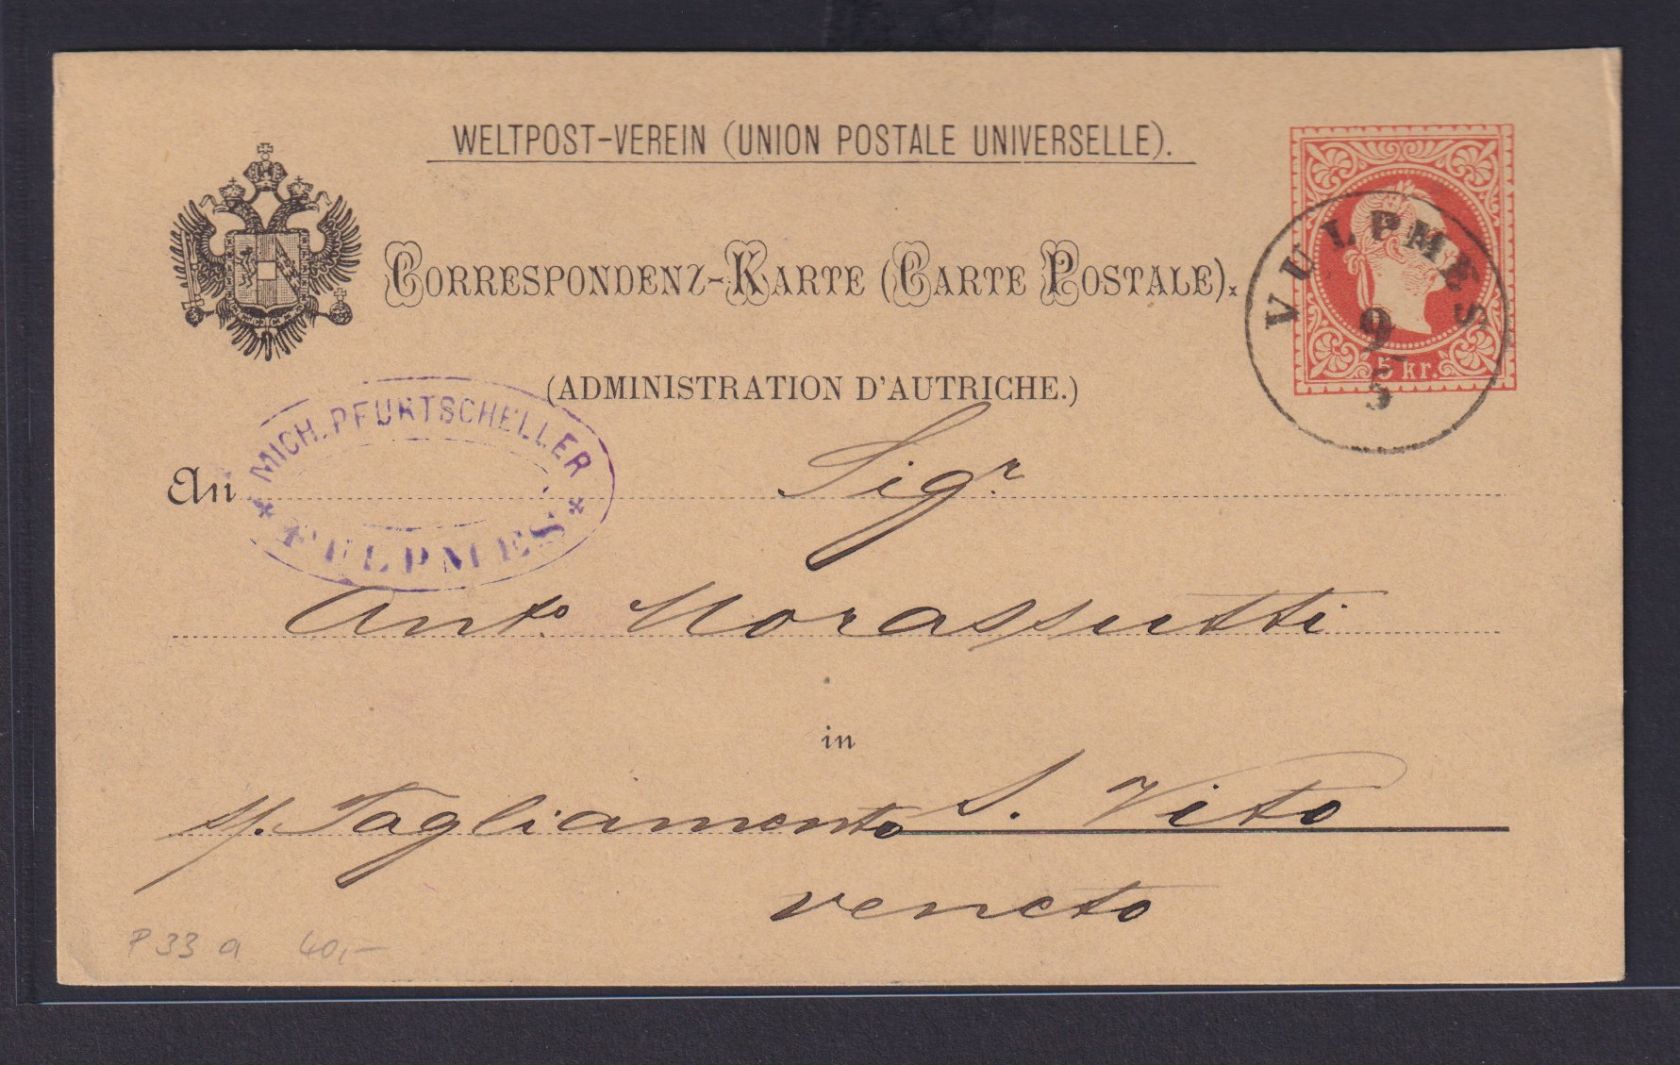 WELTPOST-VEREIN (UNION POSTALE UNIVERSELLE).
CORRESPONDENZ-KARTE (CARTE POSTALE).
(ADMINISTRATION D'AUTRICHE.)
5 kr.
VULPMES
9
5
MICH. PFURTSCHELLER
FULPMES
An Sigr.
Anto. Morassutti
in
s/. Tagliamento S. Vito
veneto
P 33 a 40,-